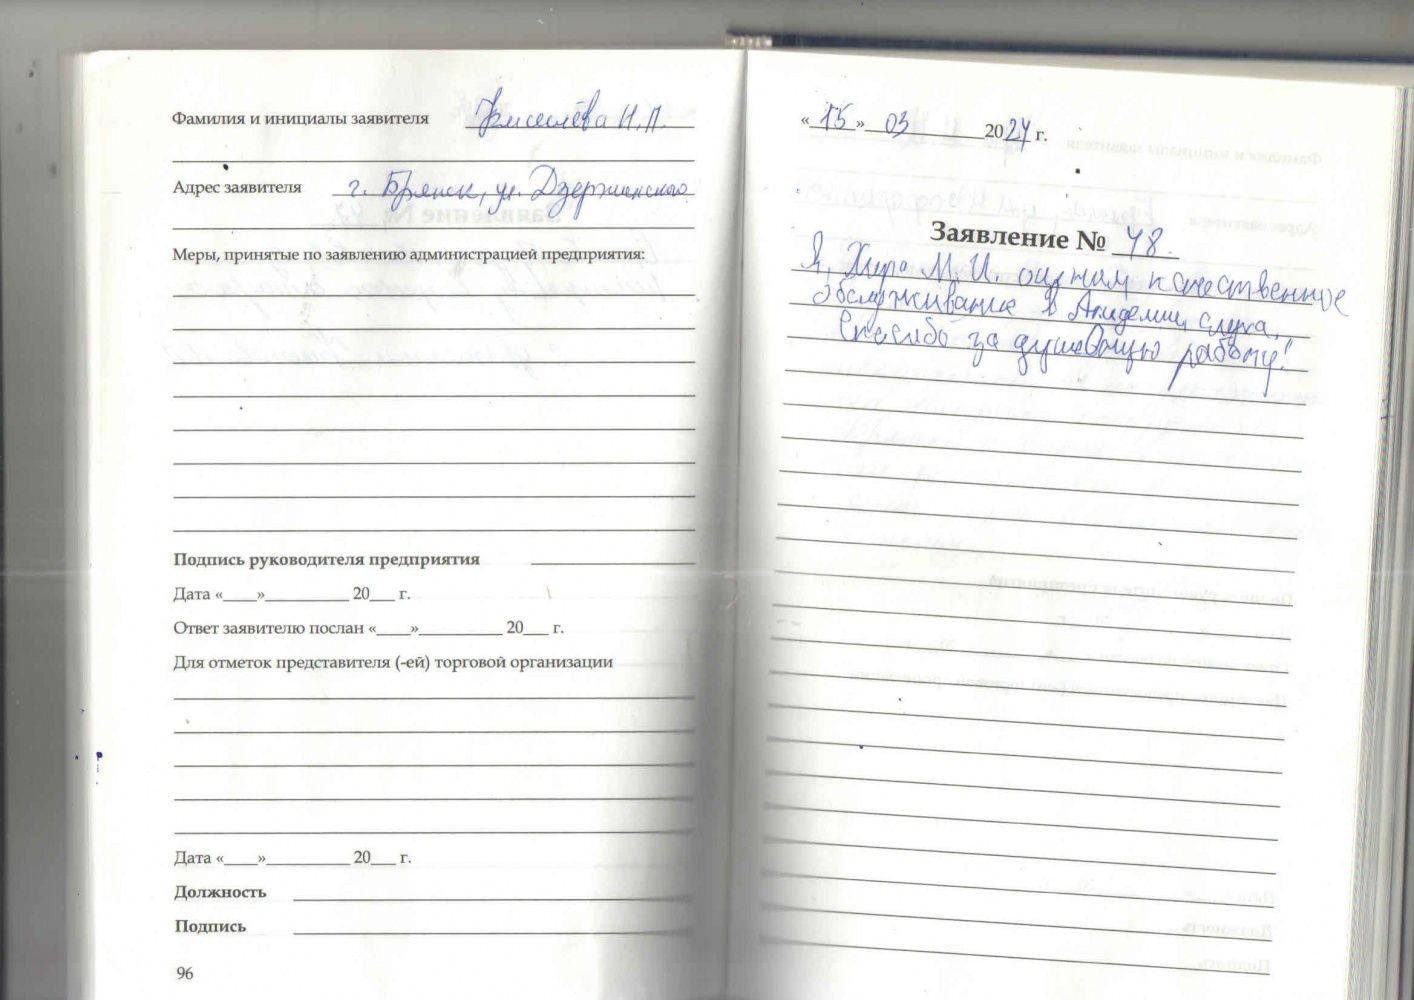 Фамилия и инициалы заявителя Киселёва Н.П.
Адрес заявителя г. Брянск, ул. Дзержинского
Меры, принятые по заявлению администрацией предприятия:
Подпись руководителя предприятия
Дата «___»__________ 20___ г.
Ответ заявителю послан «____»__________ 20___ г.
Для отметок представителя (-ей) торговой организации
Дата «____»__________ 20___ г.
Должность
Подпись
96
«15» 03 2024 г.
Заявление № 48.
Я, М.И. качественное
обслуживание в Академии слуха.
Спасибо за душевную работу!